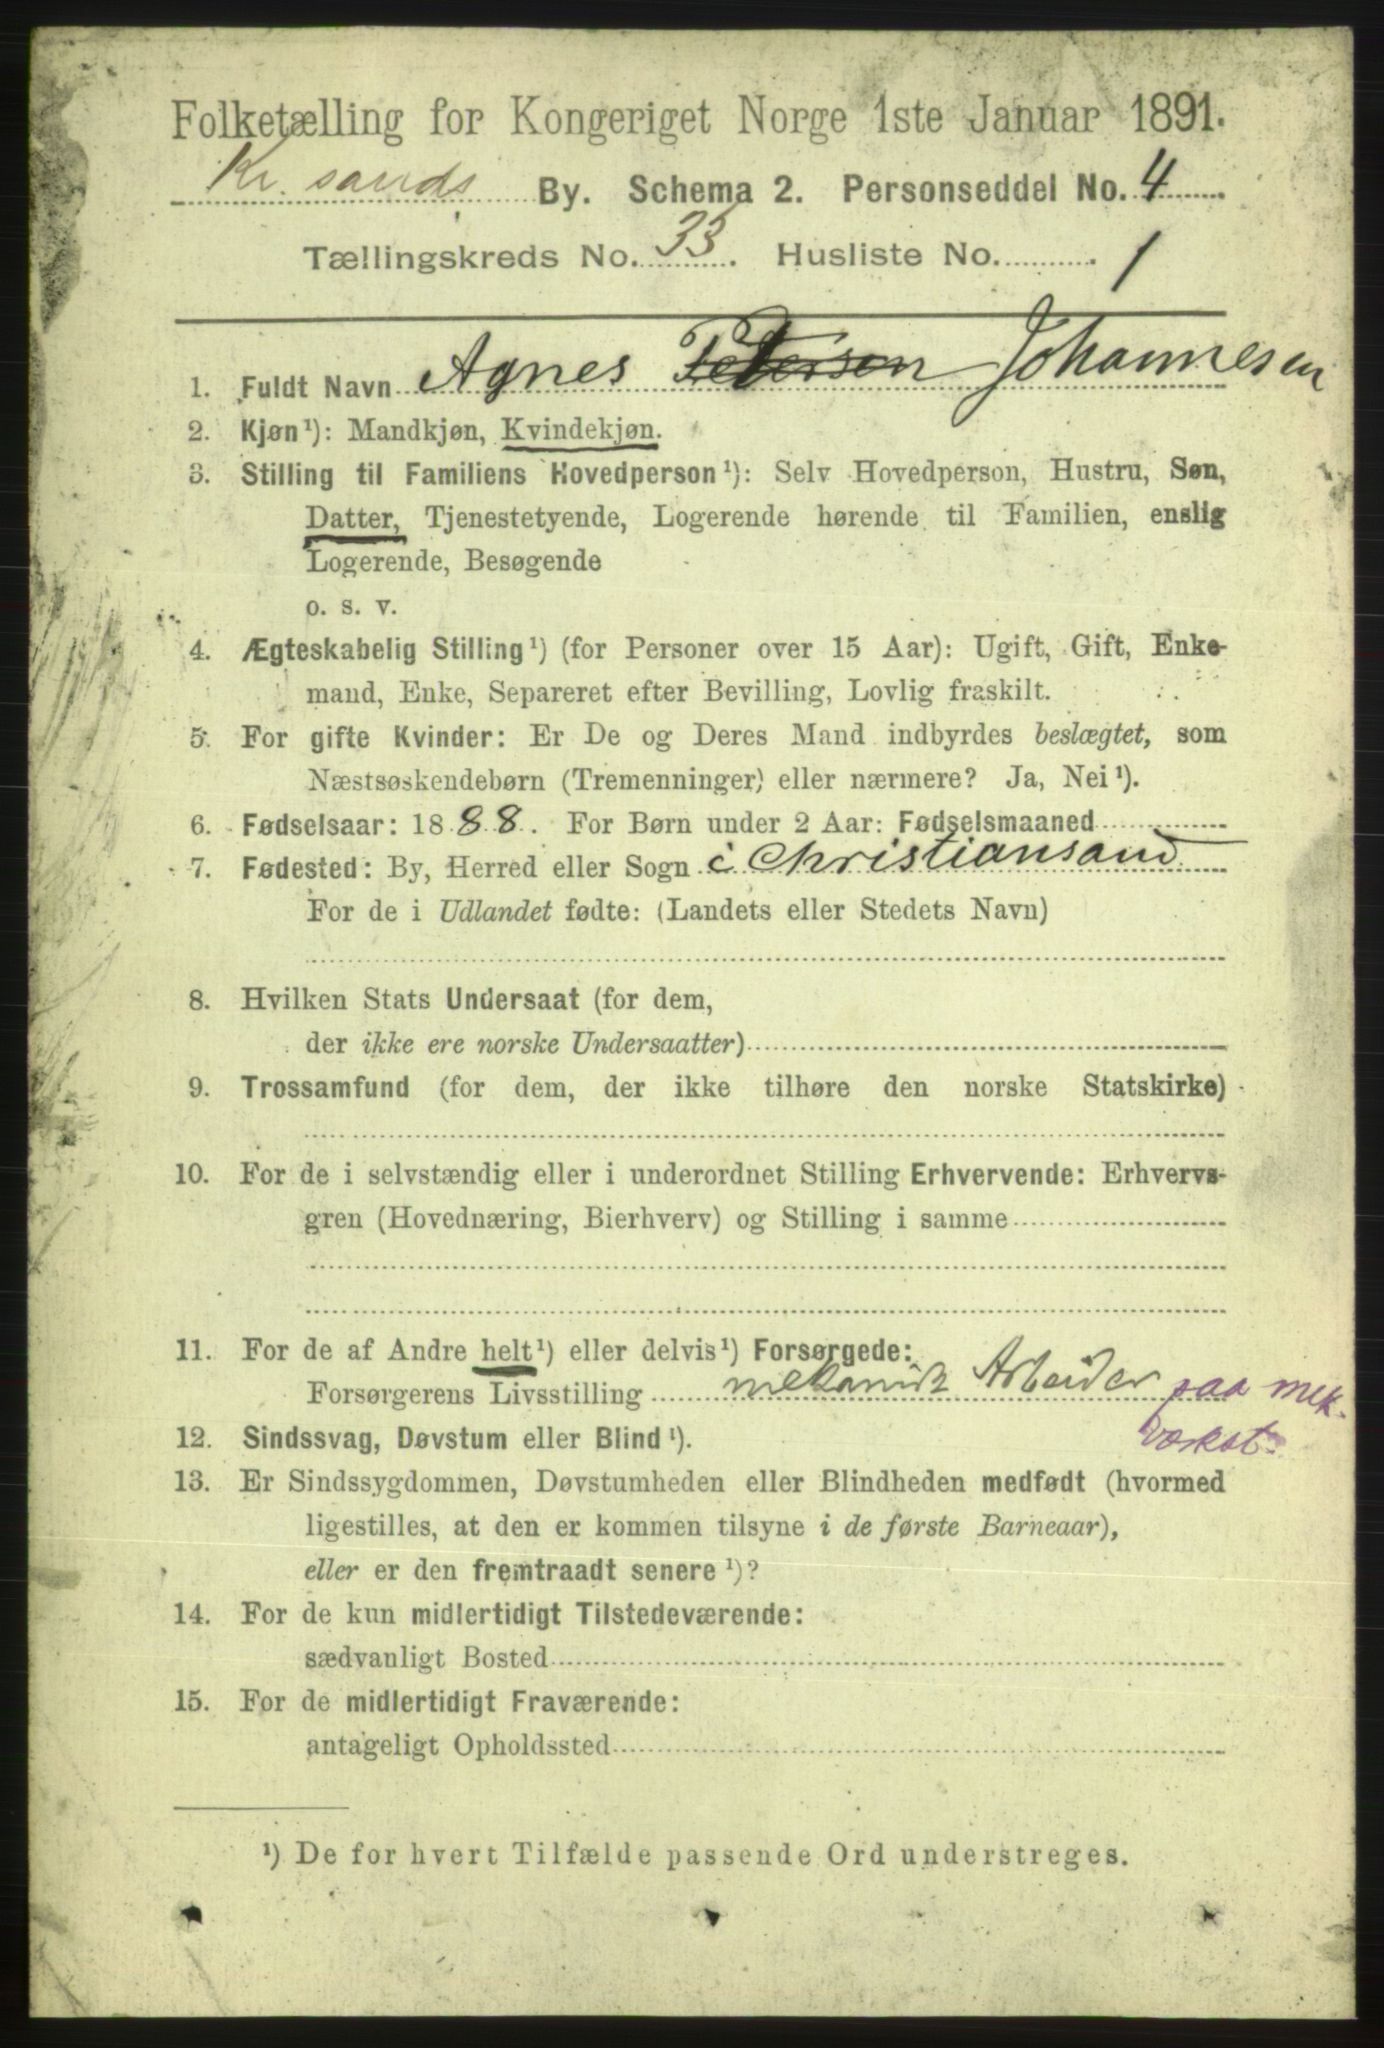 Folketælling for Kongeriget Norge 1ste Januar 1891.
Kr. sands By. Schema 2. Personseddel No. 4
Tællingskreds No. 33. Husliste No. 1
1. Fuldt Navn Agnes Pedersen Johannesen
2. Kjøn¹): Mandkjøn, Kvindekjøn.
3. Stilling til Familiens Hovedperson¹): Selv Hovedperson, Hustru, Søn,
Datter, Tjenestetyende, Logerende hørende til Familien, enslig
Logerende, Besøgende
o. s. v.
4. Ægteskabelig Stilling¹) (for Personer over 15 Aar): Ugift, Gift, Enke-
mand, Enke, Separeret efter Bevilling, Lovlig fraskilt.
5. For gifte Kvinder: Er De og Deres Mand indbyrdes beslægtet, som
Næstsøskendebørn (Tremenninger) eller nærmere? Ja, Nei¹).
6. Fødselsaar: 1888. For Børn under 2 Aar: Fødselsmaaned
7. Fødested: By, Herred eller Sogn i Christiansand
For de i Udlandet fødte: (Landets eller Stedets Navn)
8. Hvilken Stats Undersaat (for dem,
der ikke ere norske Undersaatter)
9. Trossamfund (for dem, der ikke tilhøre den norske Statskirke)
10. For de i selvstændig eller i underordnet Stilling Erhvervende: Erhvervs-
gren (Hovednæring, Bierhverv) og Stilling i samme
11. For de af Andre helt¹) eller delvis¹) Forsørgede:
Forsørgerens Livsstilling mekanisk Arbeider paa mek.
værkst.
12. Sindssvag, Døvstum eller Blind¹).
13. Er Sindssygdommen, Døvstumheden eller Blindheden medfødt (hvormed
ligestilles, at den er kommen tilsyne i de første Barneaar),
eller er den fremtraadt senere¹)?
14. For de kun midlertidigt Tilstedeværende:
sædvanligt Bosted
15. For de midlertidigt Fraværende:
antageligt Opholdssted
¹) De for hvert Tilfælde passende Ord understreges.